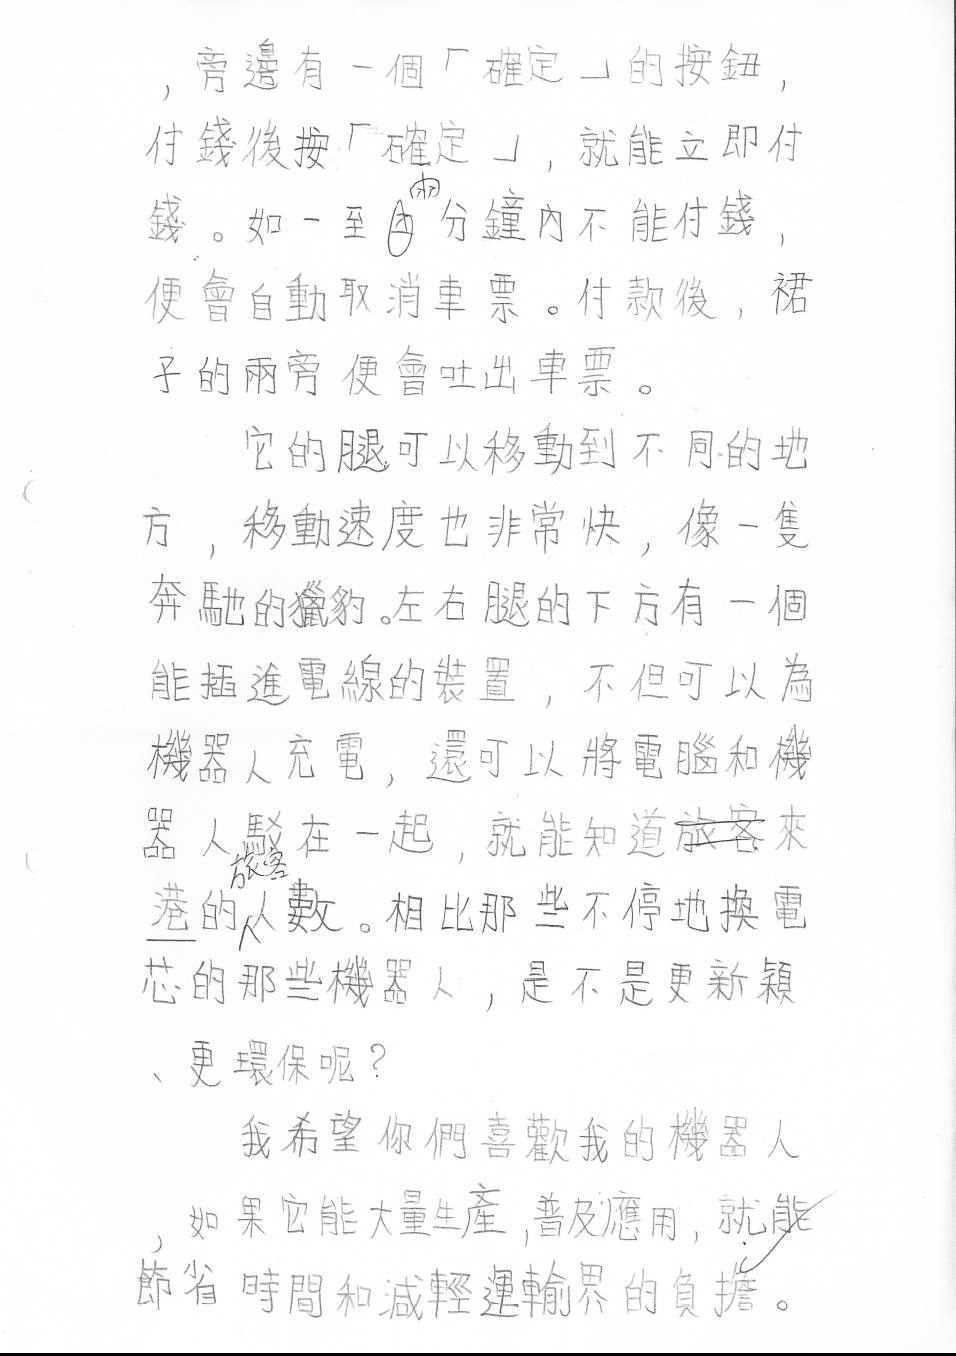 ，旁邊有一個「確定」的按鈕，
付錢後按「確定」，就能立即付
錢。如一至兩分鐘內不能付錢，
便會自動取消車票。付款後，裙
子的兩旁便會吐出車票。
它的腿可以移動到不同的地
方，移動速度也非常快，像一隻
奔馳的獵豹。左右腿的下方有一個
能插進電線的裝置，不但可以為
機器人充電，還可以將電腦和機
器人駁在一起，就能知道旅客來
港的旅客人數。相比那些不停地換電
芯的那些機器人，是不是更新穎
、更環保呢？
我希望你們喜歡我的機器人
，如果它能大量生產，普及應用，就能
節省時間和減輕運輸界的負擔。